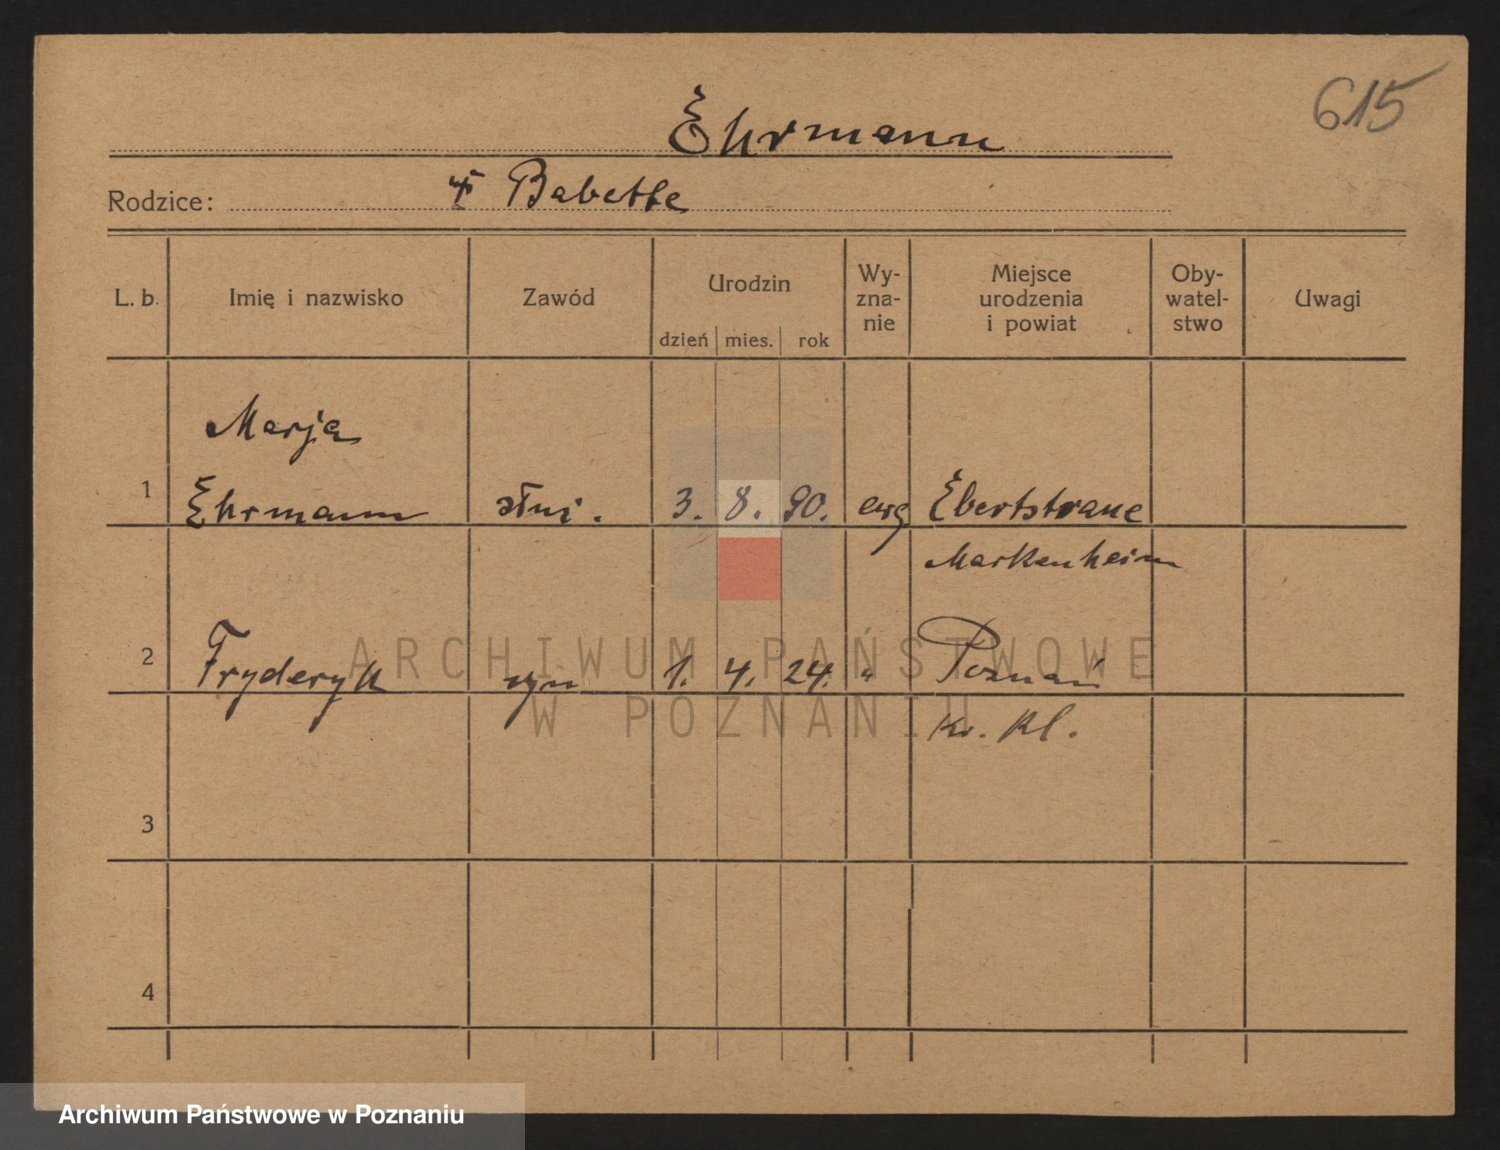 615
Ehrmann
Rodzice: Babette
L. b. Imię i nazwisko Zawód Urodzin dzień mies. rok Wy-zna-nie Miejsce urodzenia i powiat Oby-watel-stwo Uwagi
Marja
1 Ehrmann służ. 3. 8. 90. ewg Ebertstrane
Markenheim
2 Fryderyk syn 1. 4. 24. " Poznań
Kr. Kl.
3
4
ARCHIWUM PAŃSTWOWE
W POZNANIU
Archiwum Państwowe w Poznaniu